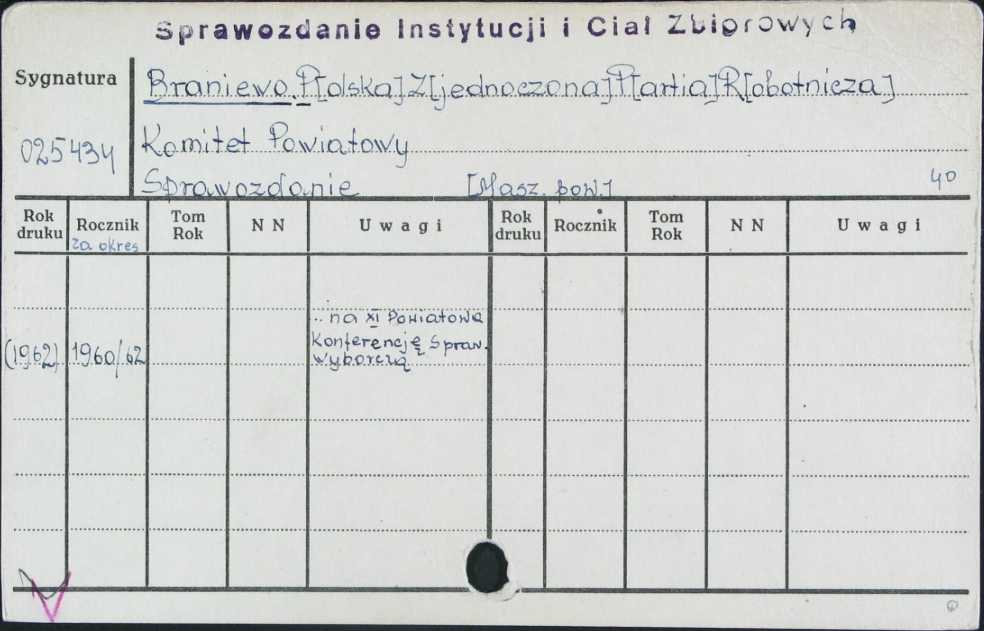 Sprawozdanie Instytucji i Ciał Zbiorowych
Sygnatura
Braniewo. P[olska] Z[jednoczona] P[artia] R[obotnicza]
025434
Komitet Powiatowy
Sprawozdanie [Masz. pow.] 40
Rok druku Rocznik za okres Tom Rok NN Uwagi Rok druku Rocznik Tom Rok NN Uwagi
...na XI Powiatową
Konferencję Spraw.
(1962) 1960/62 wyborczą